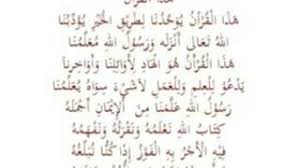 هَذَا الْقُرْآنُ
هَذَا الْقُرْآنُ يُوَحِّدُنَا لِطَرِيقِ الْخَيْرِ يُؤَدِّبُنَا
اللهُ تَعَالَى أَنْزَلَهُ وَرَسُولُ اللهِ مُعَلِّمُنَا
هَذَا الْقُرْآنُ هُوَ الْهَادِ لِأَوَائِلِنَا وَأَوَاخِرِنَا
يَدْعُوْ لِلْعِلْمِ وَلِلْعَمَلِ لَاشَيْءَ سَوَاهُ يُعَلِّمُنَا
رَسُولُ اللهِ عَلَّمَنَا مِنَ الْإِيْمَانِ أَجْمَلَهُ
كِتَابُ اللهِ نَتَعَلَّمُهُ وَنَقْرَؤُهُ وَنَفْهَمُهُ
فِيْهِ الْأَجْرُ بِهِ الْفَوْلُ إِذَا كُنَّا نُبَلِّغُهُ